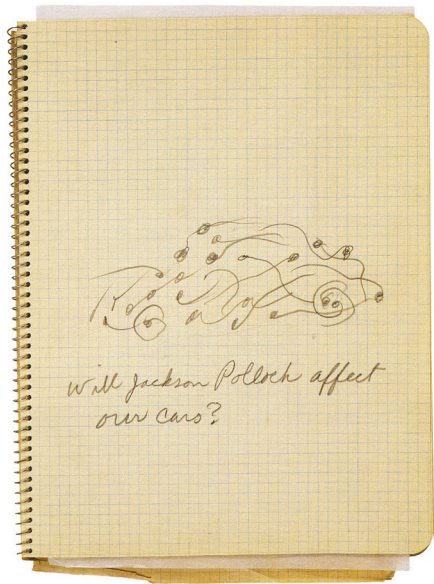 Will Jackson Pollock affect
our cars?